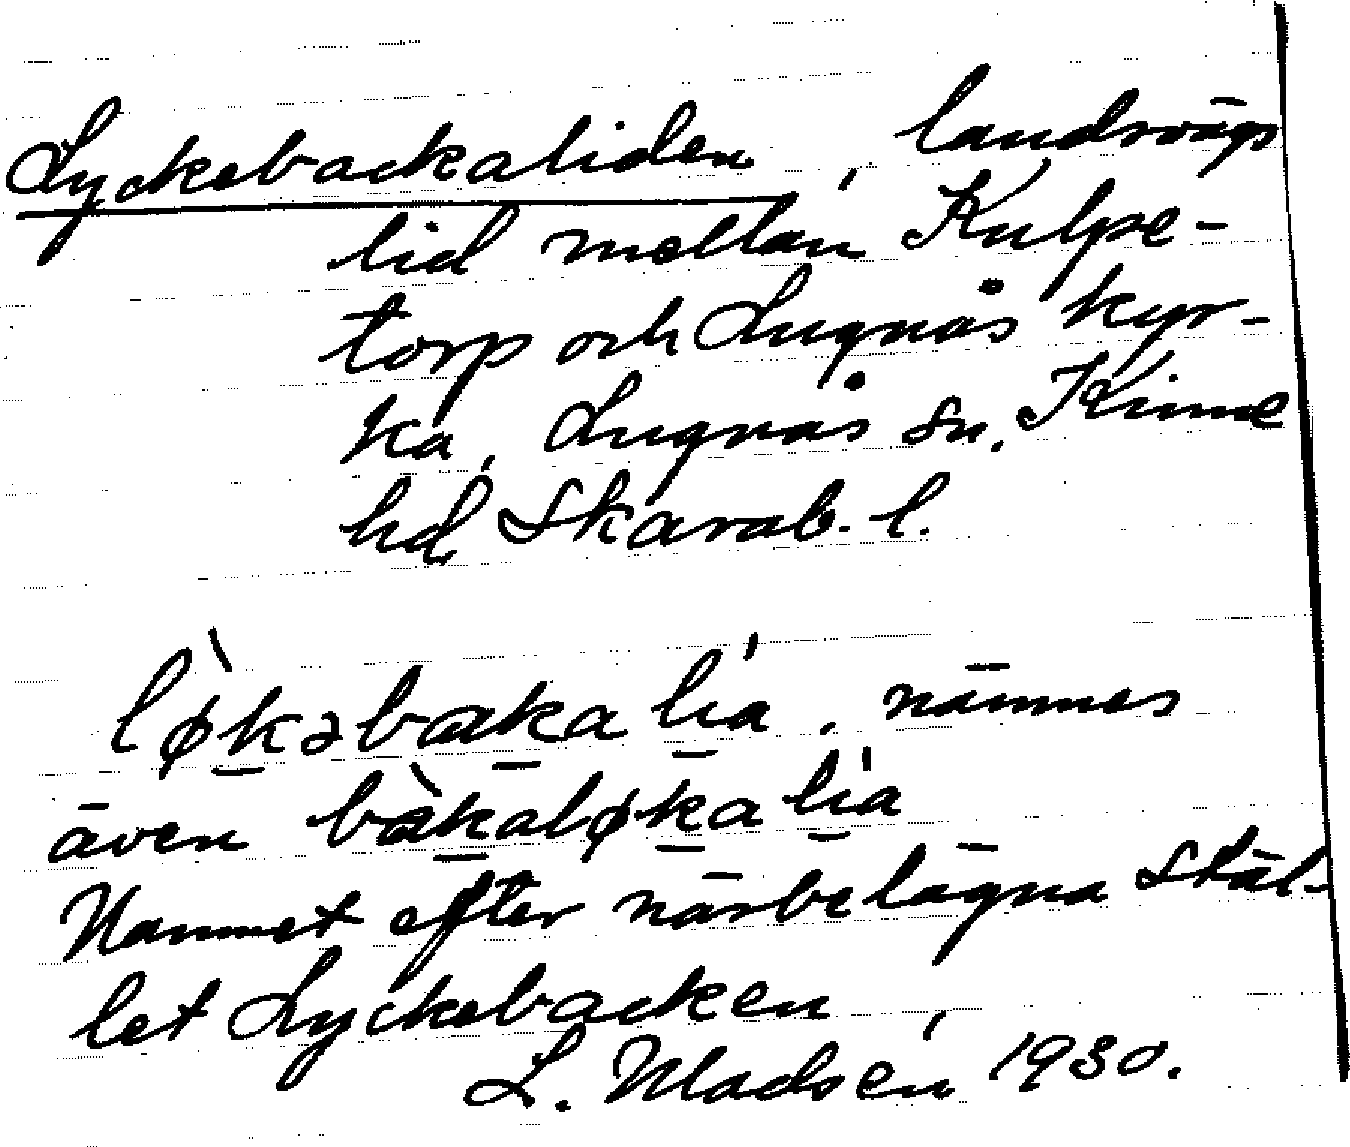 Lyckebackaliden, landsvägs
lid mellan Kulpe-
torp och Lugnås kyr-
ka, Lugnås sn. Kinne
hd Skarab. l.
lø̀kəbaka lía, nämnes
även bàkaløka lía
Namnet efter närbelägna Stäl-
let Lyckebacken
L. Madsén 1930.